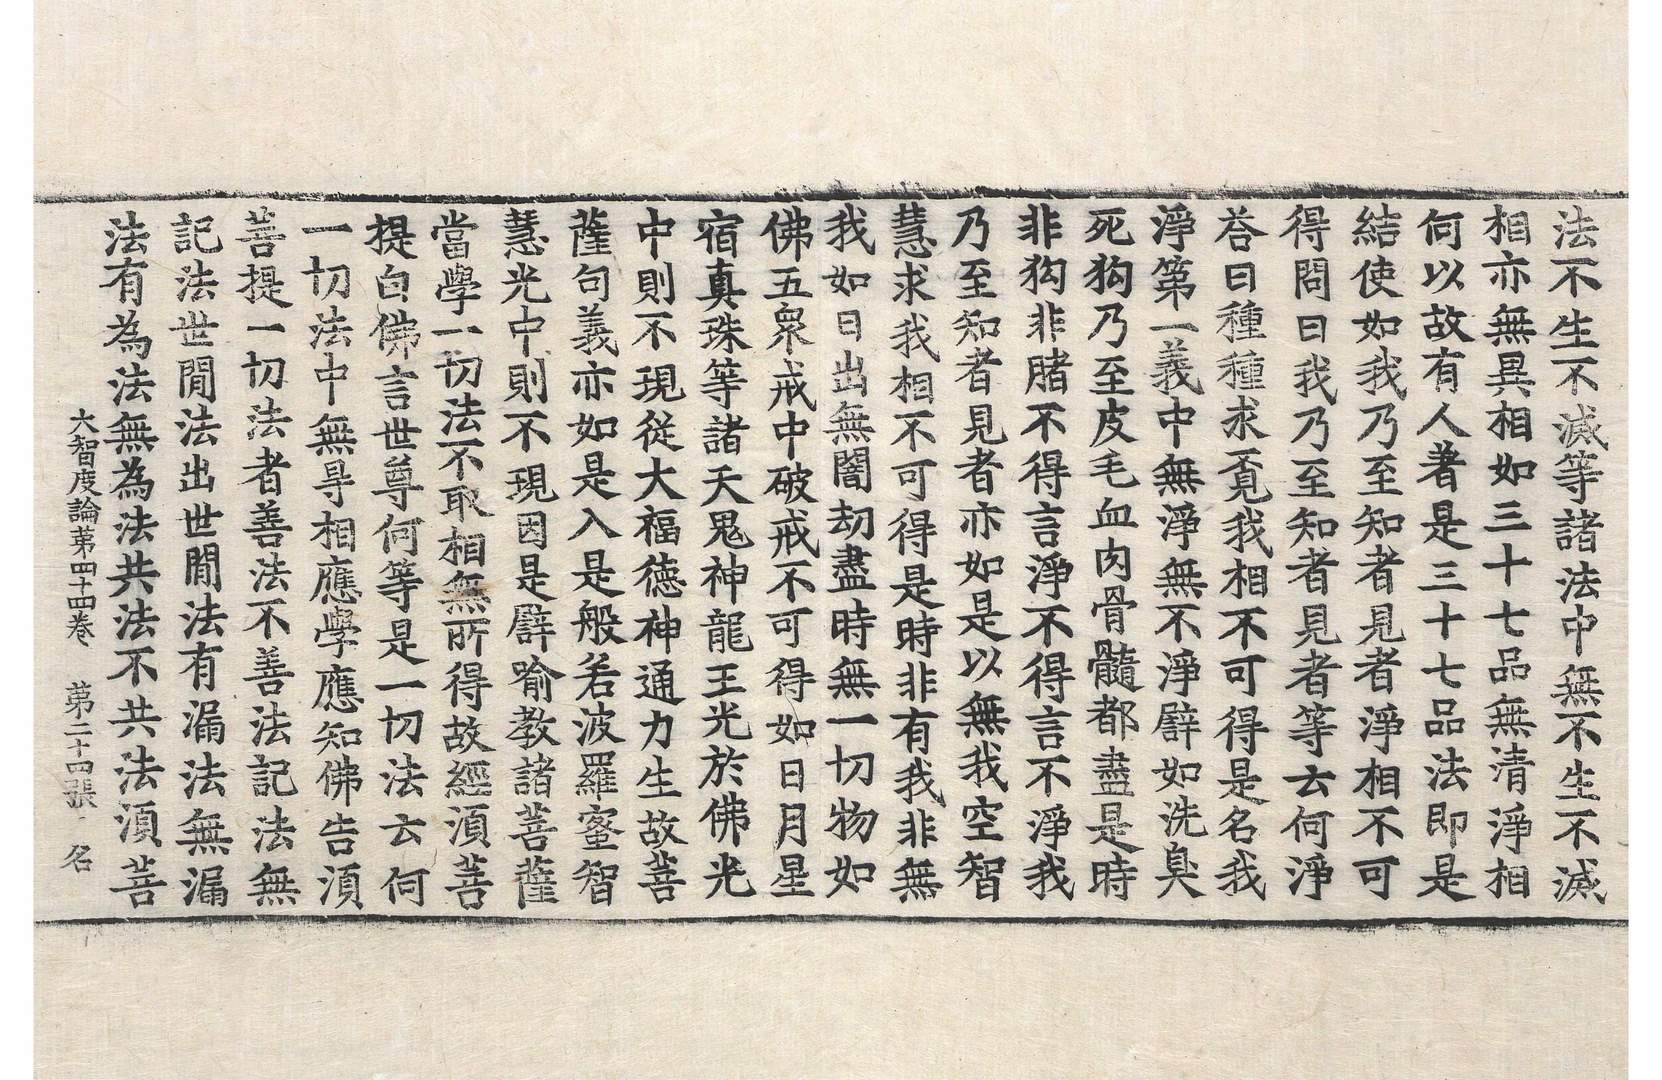 法不生不滅等諸法中無不生不滅
相亦無異相如三十七品無清淨相
何以故有人著是三十七品法即是
結使如我乃至知者見者淨相不可
得問曰我乃至知者見者等云何淨
荅曰種種求覓我相不可得是名我
淨第一義中無淨無不淨譬如洗臭
死狗乃至皮毛血肉骨髓都盡是時
非狗非賭不得言淨不得言不淨我
乃至知者見者亦如是以無我空智
慧求我相不可得是時非有我非無
我如日出無闇劫盡時無一切物如
佛五衆戒中破戒不可得如日月星
宿真珠等諸天鬼神龍王光於佛光
中則不現從大福德神通力生故菩
薩句義亦如是入是般若波羅蜜智
慧光中則不現因是譬喻教諸菩薩
當學一切法不取相無所得故經湏菩
提白佛言世尊何等是一切法云何
一切法中無㝵相應學應知佛告湏
菩提一切法者善法不善法記法無
記法世閒法出世閒法有漏法無漏
法有為法無為法共法不共法湏菩
大智度論第四十四卷 第二十四張 名